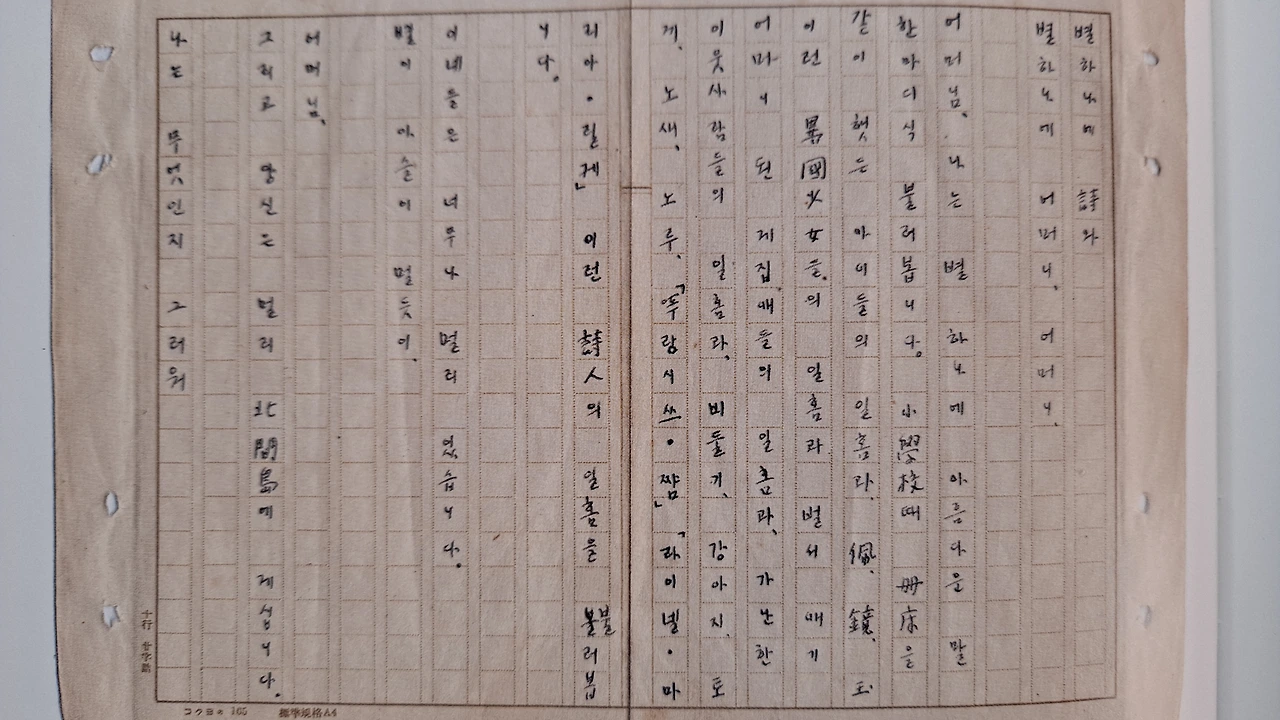 별하나에 詩와
별하나에 어머니, 어머니,
어머님, 나는 별 하나에 아름다운 말
한마디식 불러봅니다. 小學校때 册床을
같이 햇든 아이들의 일홈과, 佩, 鏡, 玉
이런 異國少女들의 일홈과 벌서 애기
어마니 된 게집애들의 일홈과, 가난한
이웃사람들의 일홈과, 비둘기, 강아지, 토
게, 노새, 노루, 「푸랑시쓰·쨤」 「라이넬·마
리아·릴케」 이런 詩人의 일홈을 불러봅
니다.
이네들은 너무나 멀리 있습니다.
별이 아슬이 멀듯이,
어머님,
그리고 당신은 멀리 北間島에 게십니다.
나는 무엇인지 그러워
十行 廿字詰
コクヨ 165 標準規格A4